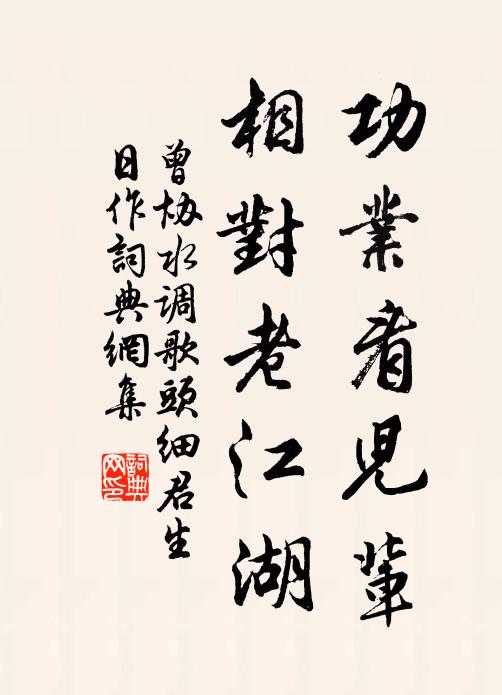 功業看兒輩
相對老江湖
曾協水调歌頭細君生
日作詞典網集
詞典網印